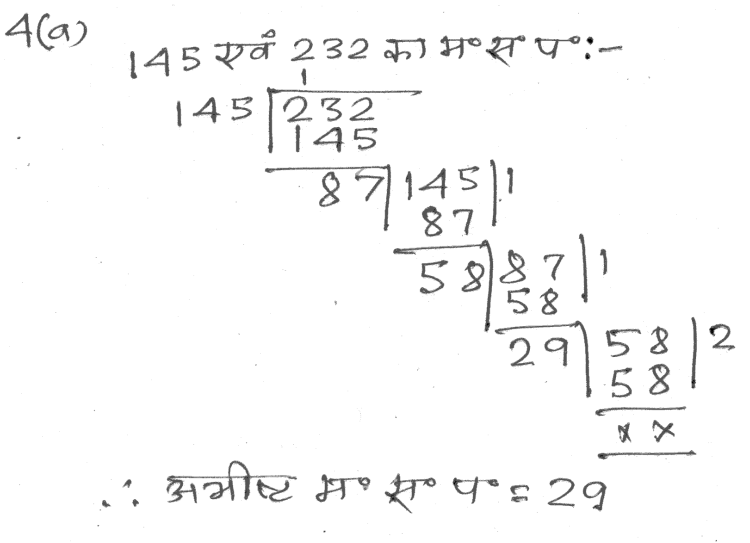 4(a)
145 एवं 232 का म० स० प०:-
1
145 232
145
87 145 1
87
58 87 1
58
29 58 2
58
x x
∴ अभीष्ट म० स० प० = 29